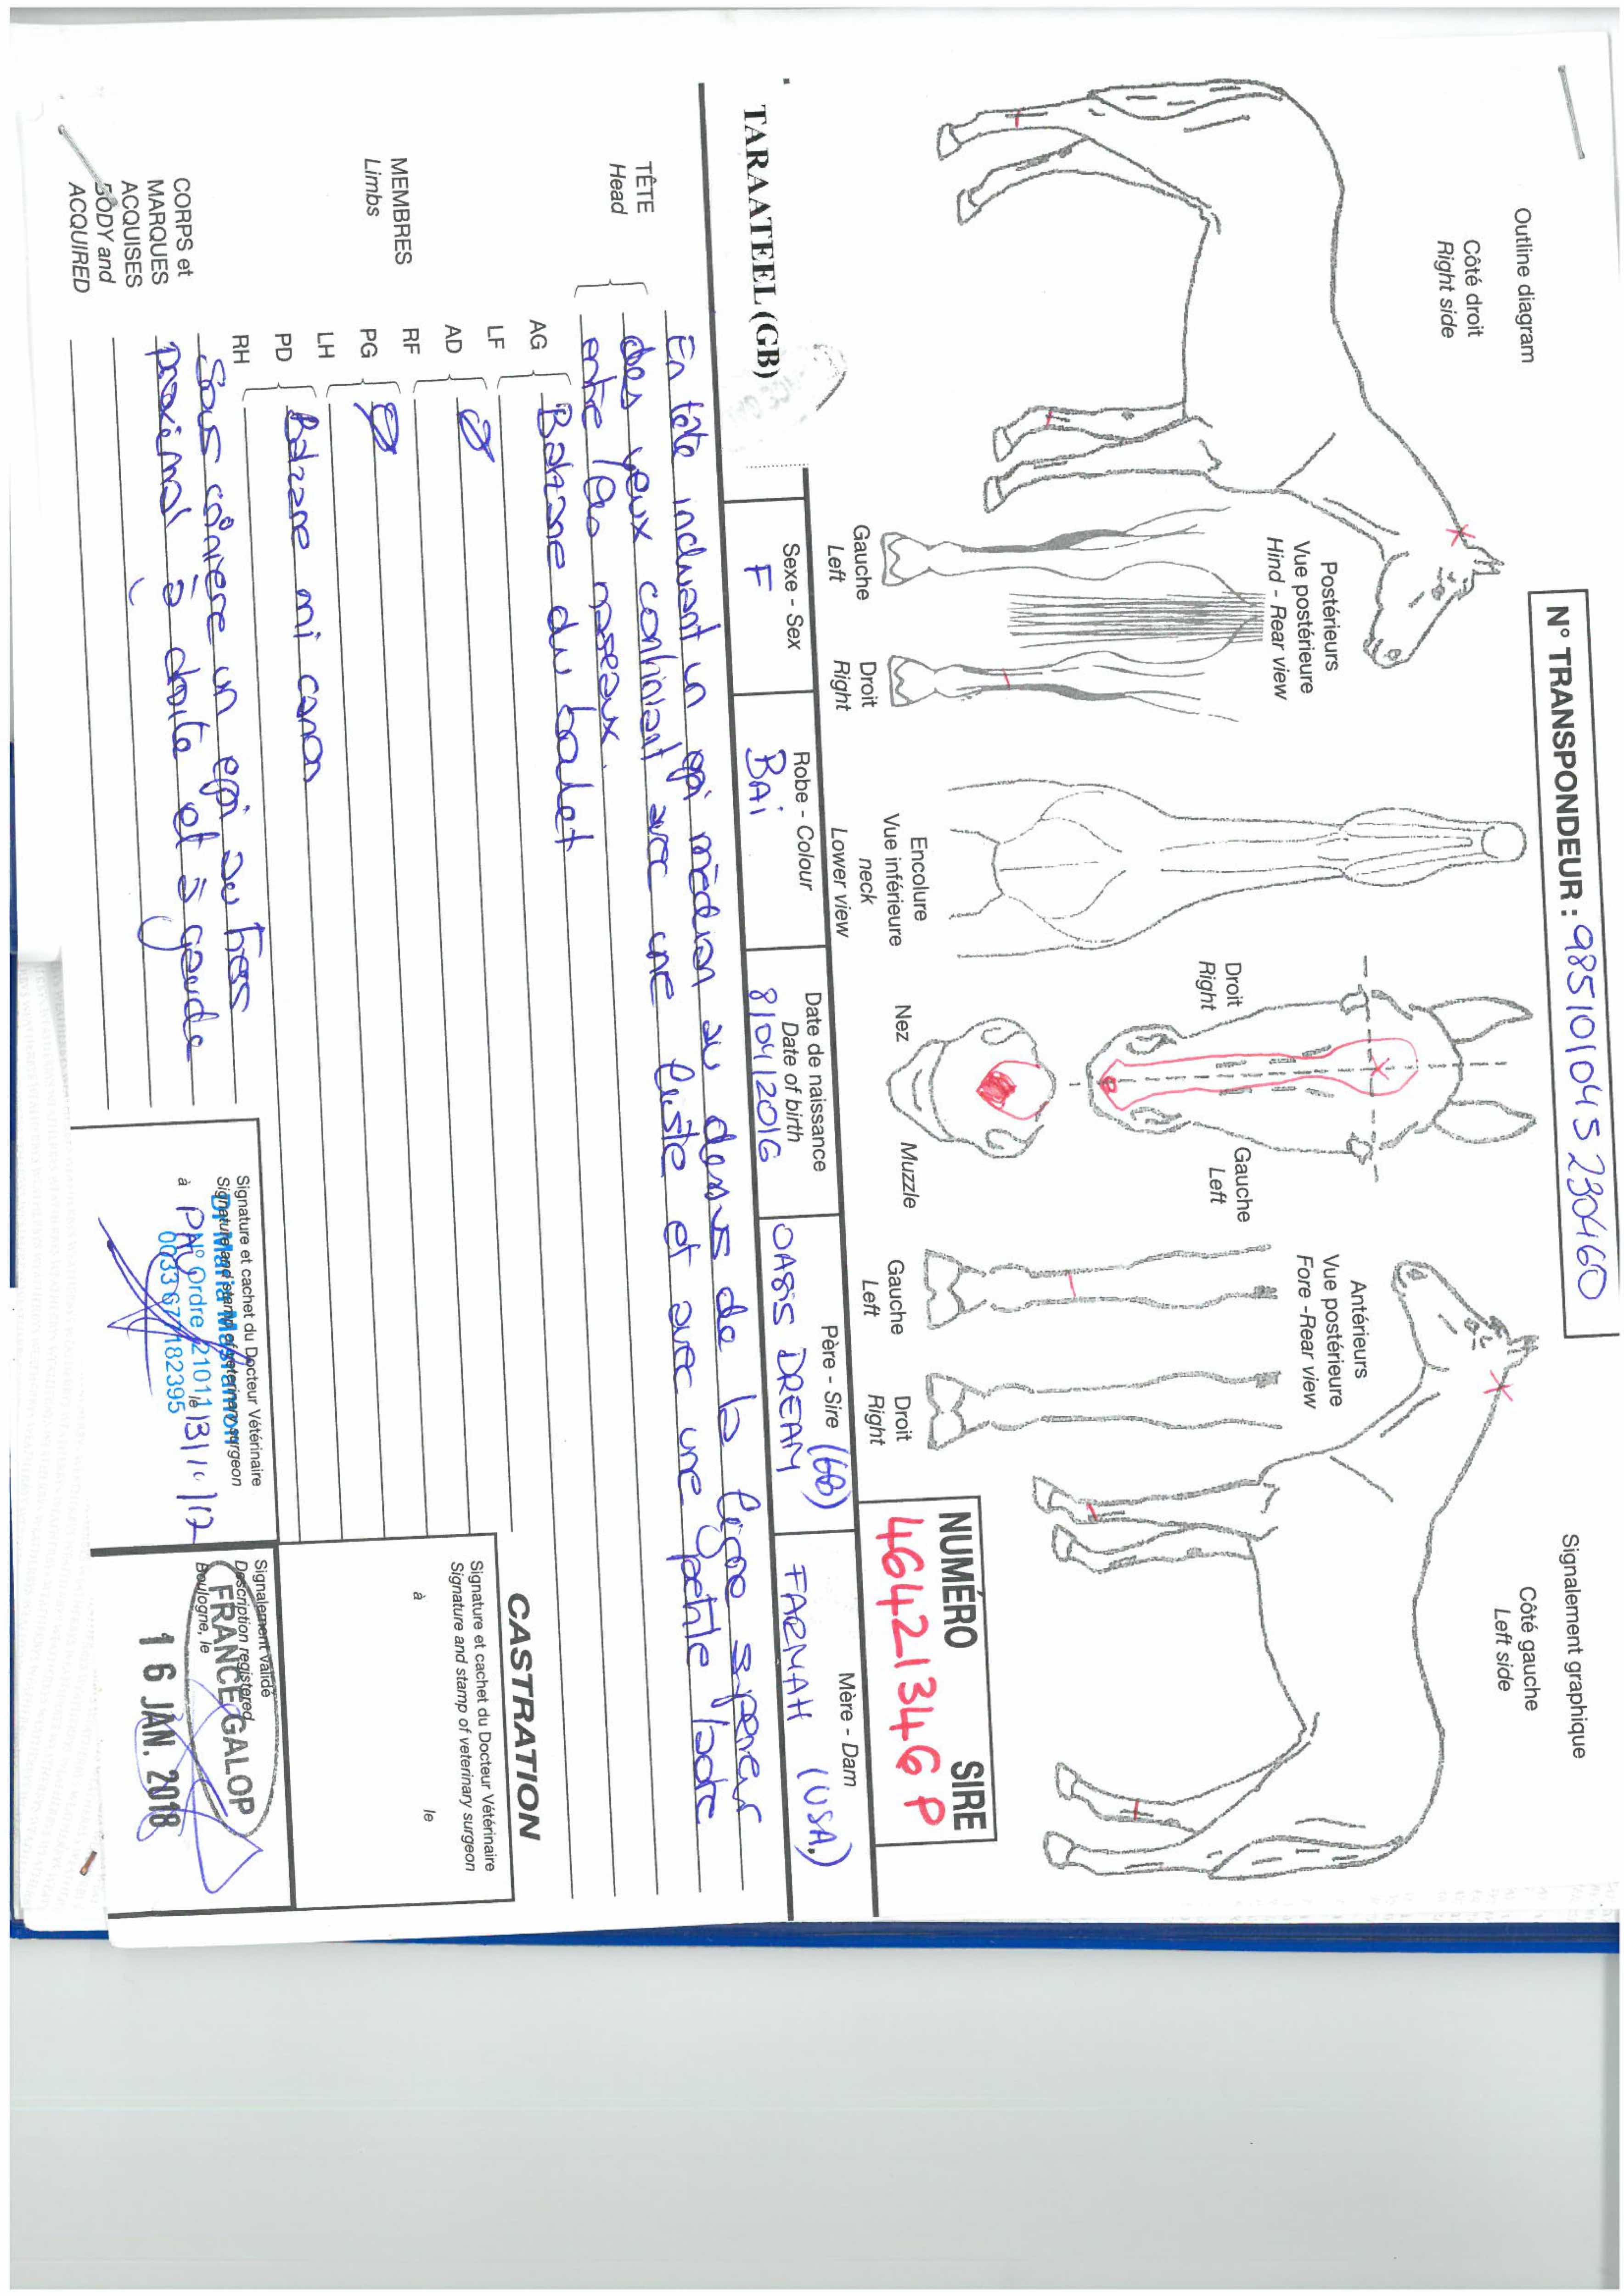 N° TRANSPONDEUR : 985101045230460
Outline diagram
Signalement graphique
Côté droit
Right side
Côté gauche
Left side
Postérieurs
Vue postérieure
Hind - Rear view
Gauche
Left
Droit
Right
Encolure
Vue inférieure
neck
Lower view
Droit
Right
Gauche
Left
Nez
Muzzle
Antérieurs
Vue postérieure
Fore - Rear view
Gauche
Left
Droit
Right
NUMÉRO SIRE
46421346 P
TARAATEEL (GB)
Sexe - Sex
F
Robe - Colour
BAi
Date de naissance
Date of birth
8/04/2016
Père - Sire
OASIS DREAM (GB)
Mère - Dam
FARMAH (USA)
TÊTE
Head
En tête incluant un épi médian au dessus de la ligne superieur
des yeux continiant avec une liste et avec une petite ladre
entre les naseaux.
MEMBRES
Limbs
AG
LF
Balzane du boulet
AD
RF
Ø
PG
LH
Ø
PD
RH
Balzane mi canon
CORPS et
MARQUES
ACQUISES
BODY and
ACQUIRED
Sous crinière un épi au tiers
proximal à droite et à gauche
CASTRATION
Signature et cachet du Docteur Vétérinaire
Signature and stamp of veterinary surgeon
à le
Signature et cachet du Docteur Vétérinaire
Signature and stamp of veterinary surgeon
à le
N° Ordre 21011
Signalement validé
Description registered
Boulogne, le
FRANCE GALOP
16 JAN. 2018